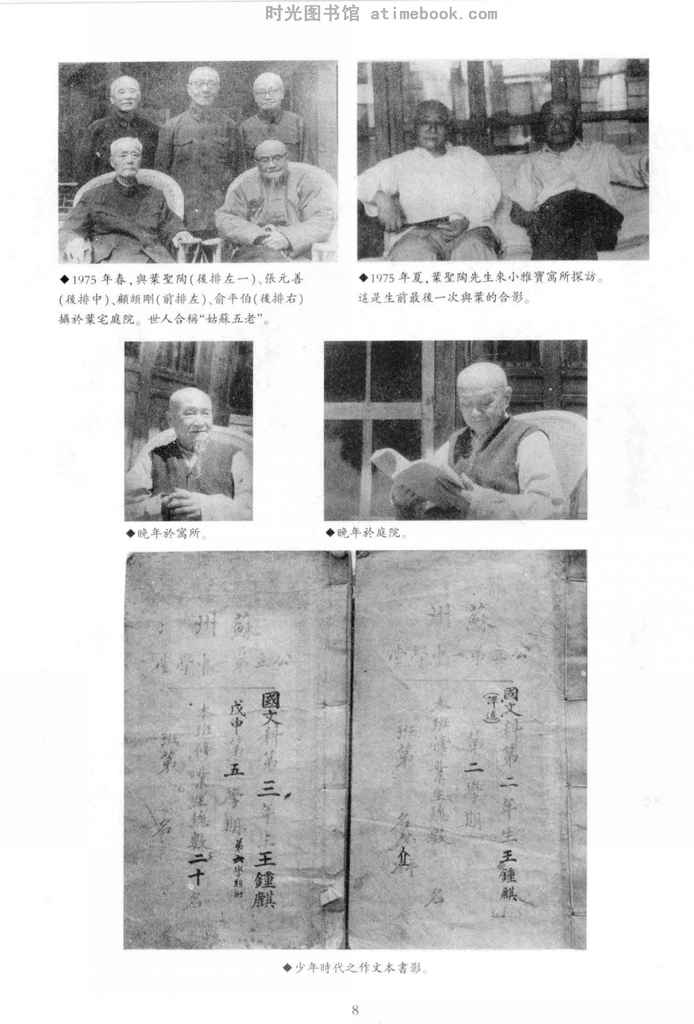 时光图书馆 atimebook.com
◆1975年春,與葉聖陶(後排左一)、張元善
(後排中)、顧頡剛(前排左)、俞平伯(後排右)
攝於葉宅庭院。世人合稱“姑蘇五老”。
◆1975年夏,葉聖陶先生來小雅寶寓所探訪。
這是生前最後一次與葉的合影。
◆晚年於寓所。
◆晚年於庭院。
蘇州
公立第一中學堂
國文科第二年生王鍾麒
第二學期
本班修業生總數 名
班第 名
蘇州
國文科第三年生王鍾麒
戊申第五學期
本班修業生總數二十名
班第 名
◆少年時代之作文本書影。
8